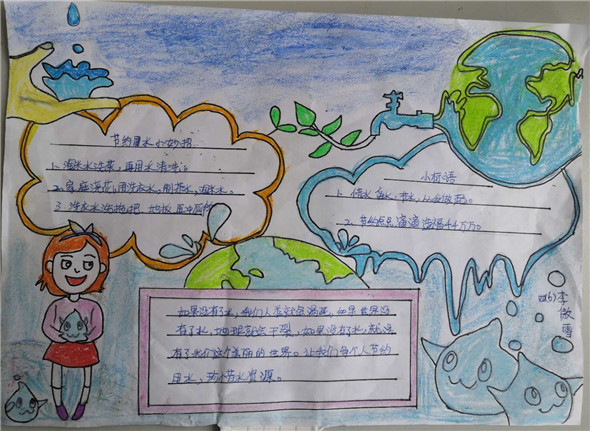 节约用水小妙招
1. 淘米水洗菜,再用水清洗。
2. 家庭浇花,用洗衣水,刷 水,淘米水。
3. 洗衣水洗拖把 地板 冲厕所
小标语
1. 惜水、 水、节水,从我做起。
2. 节约点点滴滴 造福千千万万。
如果没有了水,我们人类就会 ,如果世界没
有了水,地球就会干裂,如果没有了水,就没
有了我们这个美丽的世界。让我们每个人节约
用水,珍惜水资源。
四(6) 李傲雪